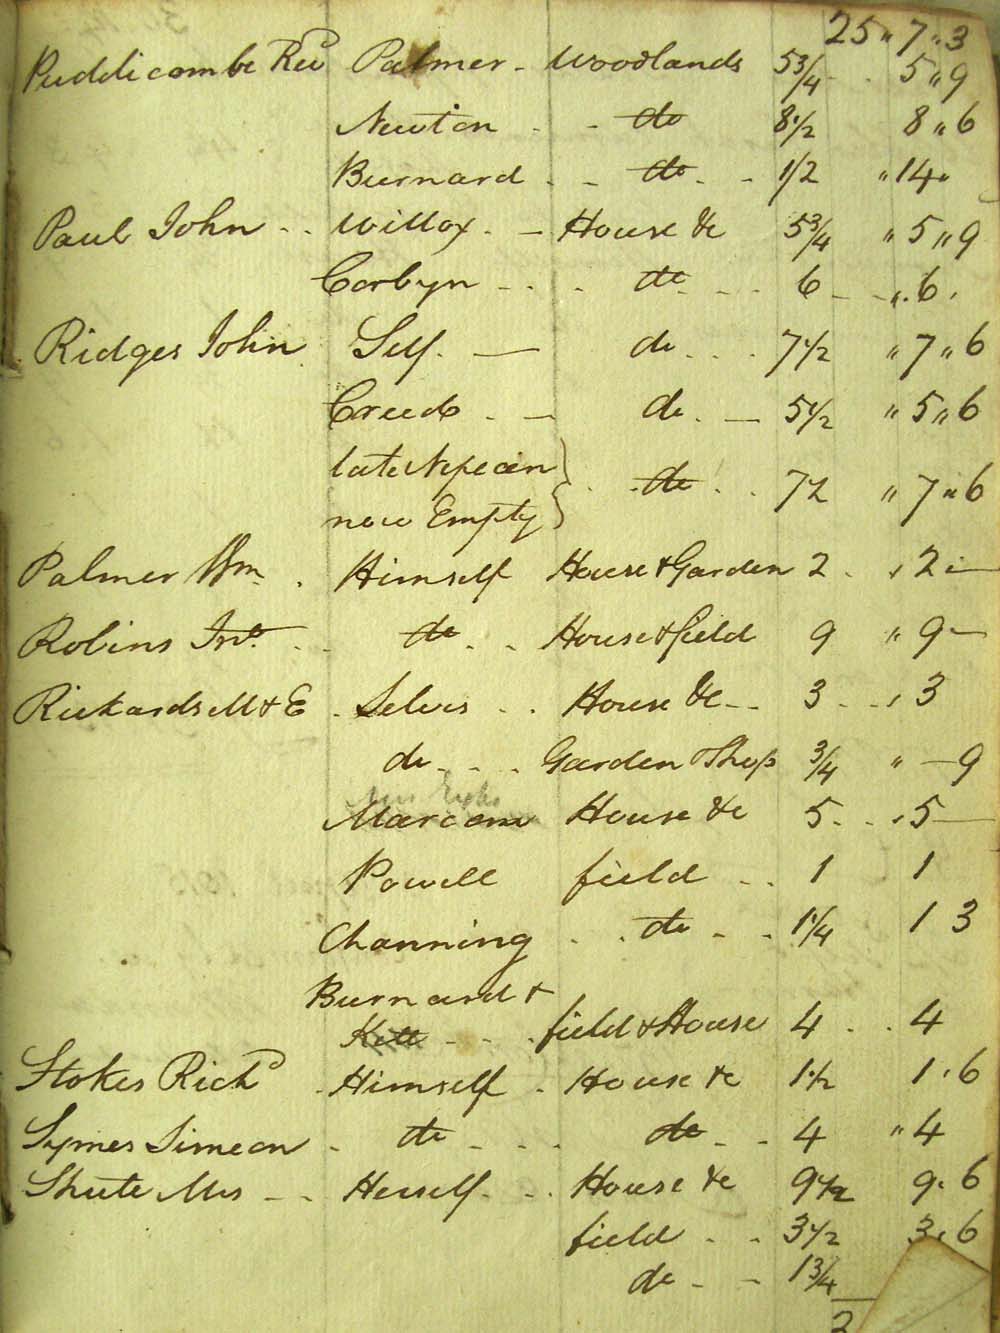 25 " 7 " 3
Puddicombe Revd Palmer - Woodlands 5 3/4 - . 5 " 9
Newton . - do 8 1/2 8 " 6
Burnard . - do . - 1/2 " 14 "
Paul John - . Willox . - House &c 5 3/4 " 5 " 9
Corbyn - . . do - . - 6 - - " . 6 .
Ridges John Self . — do . . . 7 1/2 " 7 " 6
Creed . - do . - 5 1/2 " 5 " 6
late Nepean
now Empty } . . do . . 7 1/2 " 7 " 6
Palmer Wm . Himself House & Garden 2 . " 2 " —
Robins Jno . . do . . House & field 9 " 9 —
Rickards M & E . Selves . . House &c - - 3 . . " 3
do . . . Garden & Shop 3/4 " — 9
Marcom House &c 5 . . . 5 —
Powell field . . 1 1
Channing . . do . . 1 1/4 1 3
Burnard &
field & House 4 . . 4
Stokes Richd . Himself . House &c 1 1/2 1 . 6
Symes Simeon . do - . . do . - 4 " 4
Shute Mrs - . Herself . . House &c 9 1/2 9 . 6
field . . 3 1/2 3 . 6
do . - 1 3/4
2